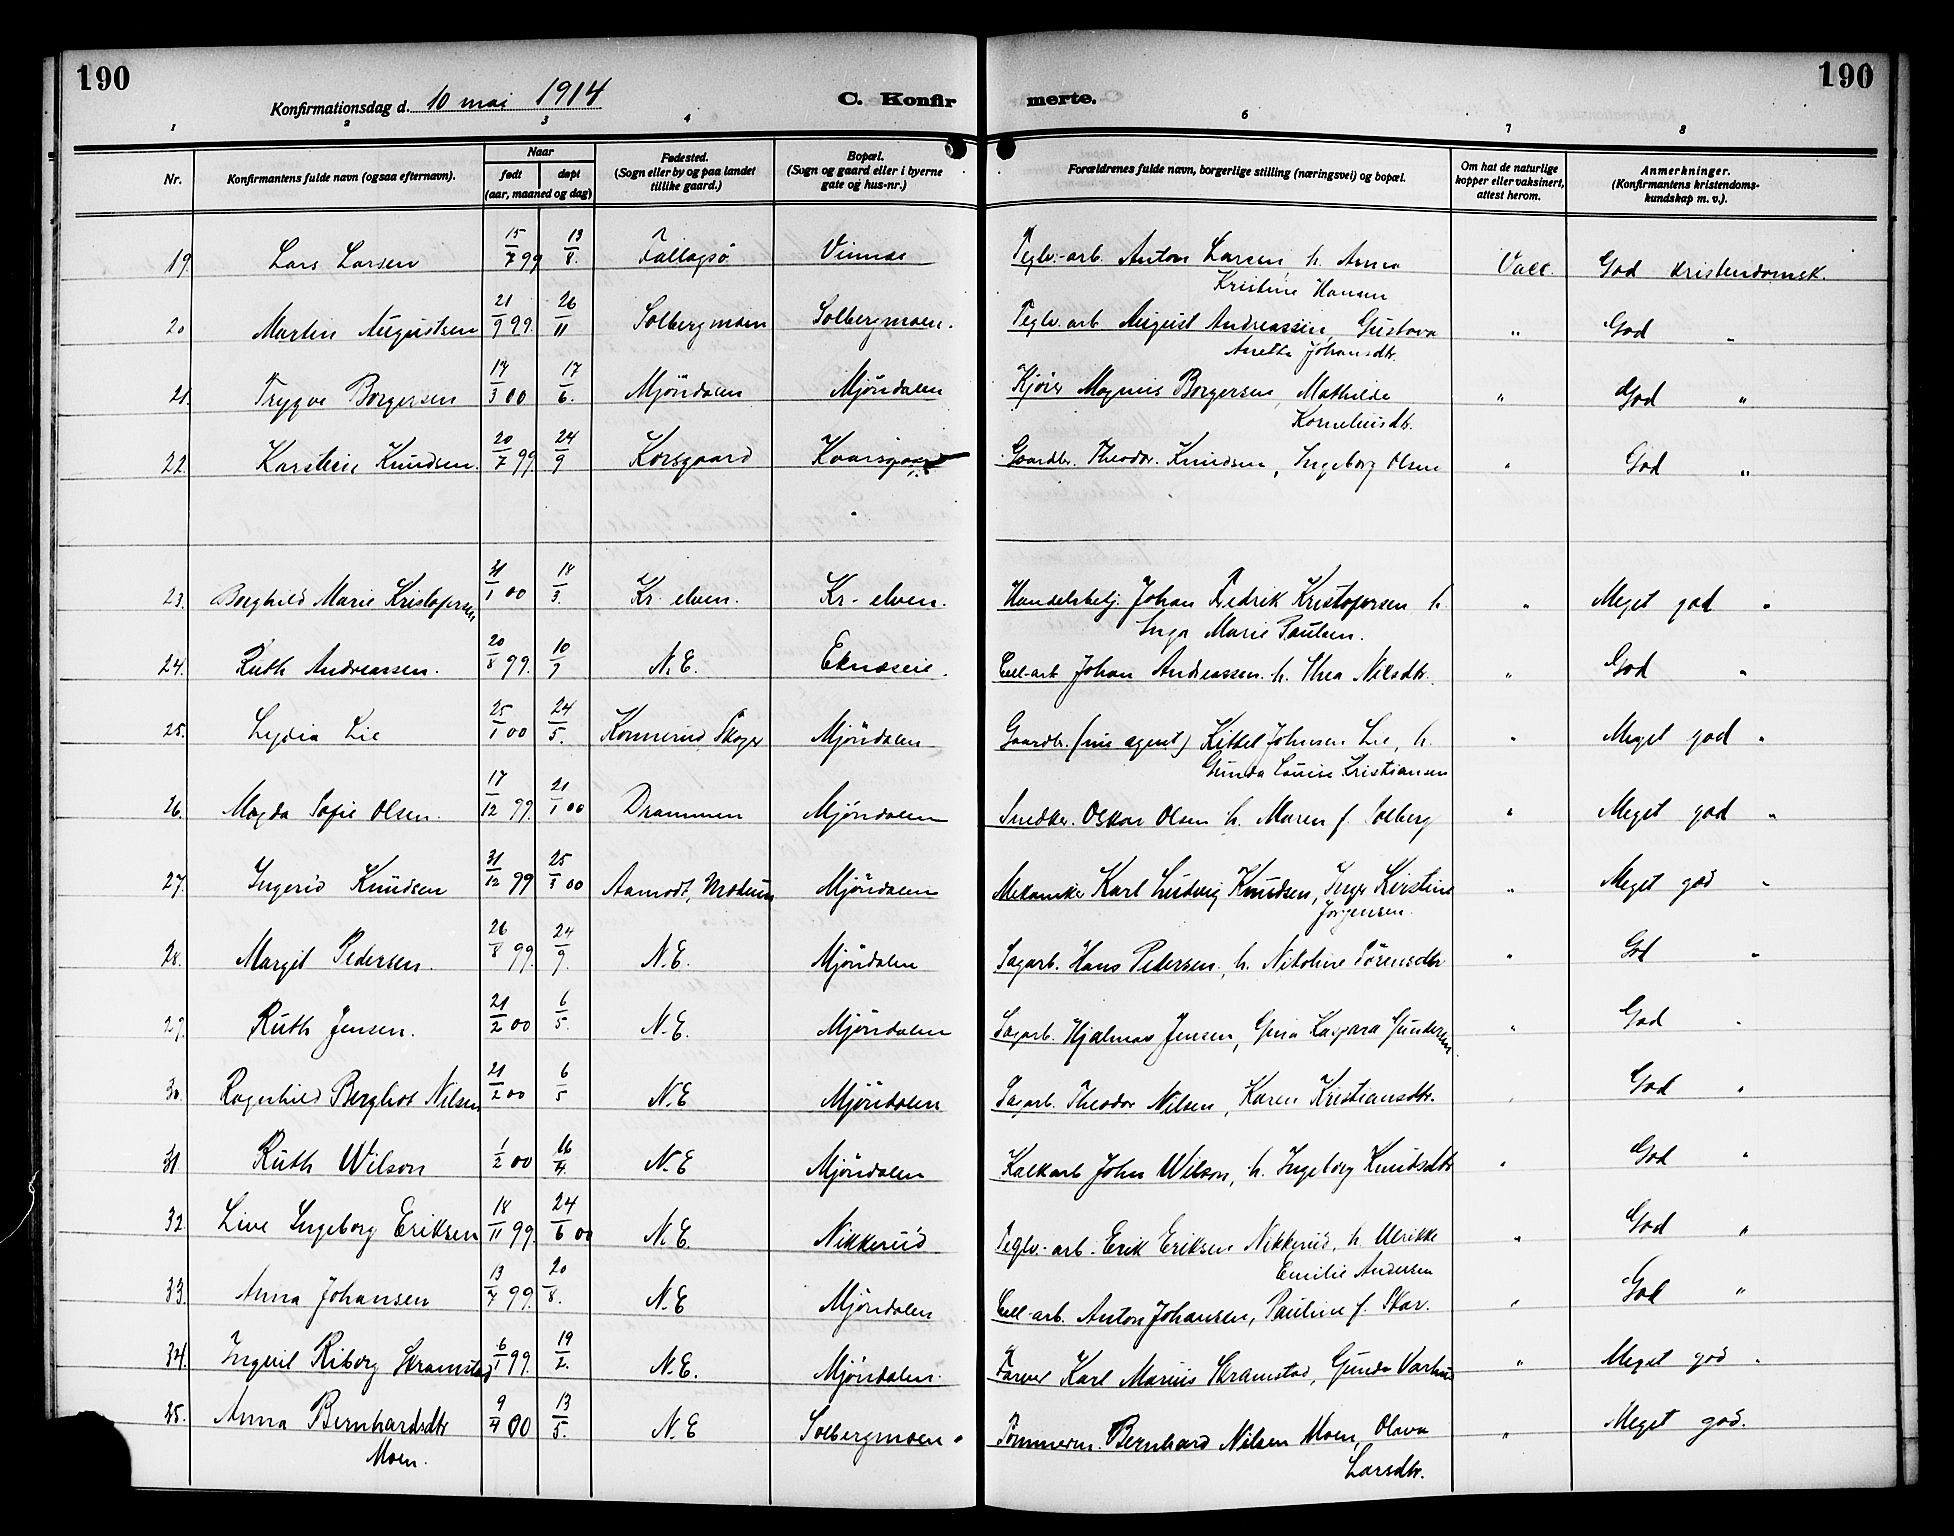 190
190
Konfirmationsdag d. 10 mai 1914
C. Konfir merte.
1 2 3 4 6 7 8
Nr. Konfirmantens fulde navn (ogsaa efternavn). Naar født døpt (aar, maaned og dag) Fødested. (Sogn eller by og paa landet tillike gaard.) Bopæl. (Sogn og gaard eller i byerne gate og hus-nr.) Forældrenes fulde navn, borgerlige stilling (næringsvei) og bopæl. Om hat de naturlige kopper eller vaksinert, attest herom. Anmerkninger. (Konfirmantens kristendoms-kundskap m. v.).
19. Lars Larsen 15/7 99 13/8. Fallagsö Vinnas Teglv.-arb. Anton Larsen, h. Anna Vacc. God kristendomsk.
Kristine Hansen
20 Martin Augustsen 21/9 99. 26/11 Solbergmoen Solbergmoen. Teglv. arb August Andreassen, Gustava " God "
Anette Johansdtr.
21. Trygve Borgersen 14/3 00 17/6. Mjöndalen Mjöndalen Kjörer Magnus Borgersen, Mathilde " God "
Korneliusdtr.
22. Karstein Knudsen. 20/7 99 24/9 Korsgaard Gaardbr. Theodor Knudsen, Ingeborg Olsen " God "
23. Borghild Marie Kristofersen 31/1 00 18/3. Kr. elven. Kr. elven. Handelsbetj. Johan Fredrik Kristofersen h. " Meget god "
Inga Marie Paulsen.
24. Ruth Andreassen. 20/8 99. 10/9 N.E. Eknæseie. Cell-arb Johan Andreassen h. Thea Nilsdtr. " God "
25. Lydia Lie 25/1 00 24/5. Konnerud, Skoger Mjöndalen Gaardbr. (nu agent) Kittel Johnsen Lie, h. " Meget god "
Gunda Louise Kristiansen
26. Magda Sofie Olsen. 17/12 99. 21/1 00 Drammen Mjöndalen Snedker. Oskar Olsen h. Maren f. Solberg " Meget god "
27. Ingerid Knudsen 31/12 99 25/3 00 Aamodt, Modum Mjöndalen Mekaniker Karl Ludvig Knudsen, Inga Kirstine " Meget god "
Jörgensen.
28. Margit Pedersen. 26/8 99. 24/9. N.E. Mjöndalen Sagarb. Hans Pedersen, h. Nikoline Sörensdtr " God "
29. Ruth Jensen. 21/2 00 6/5. N.E. Mjöndalen Sagarb. Hjalmar Jensen, Gina Kaspara Gundersen. " God "
30 Ragnhild Bergliot Nilsen 21/2 00 6/5 N.E Mjöndalen Sagarb. Theodor Nilsen, Karen Kristiansdtr. " God "
31 Ruth Wilson 1/2 00 16/4. N.E Mjöndalen Kalkarb John Wilson, h. Ingeborg Knudsdtr " God "
32. Live Ingeborg Eriksen 18/11 99. 24/6 00 N.E. Nikkerud Teglv.-arb. Erik Eriksen Nikkerud, h. Ulrikke " God "
Emilie Andersen
33. Anna Johansen 13/7 99. 20/8. N.E Mjöndalen Cell-arb. Anton Johansen, Pauline f. Skar. " God "
34. Ingrid Riborg Skramstad 6/1 99. 19/2. N.E. Mjöndalen. Farver Karl Marius Skramstad, Gunda " Meget god "
35. Anna Bernhardsdtr 9/4 00 13/5. N.E Solbergmoen. Tömmerm. Bernhard Nilsen Moen, Olava " Meget god.
Moen. Larsdtr.